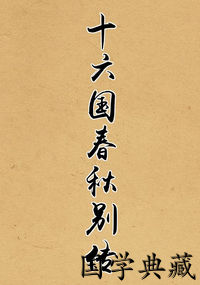 十六国春秋别传
国学典藏